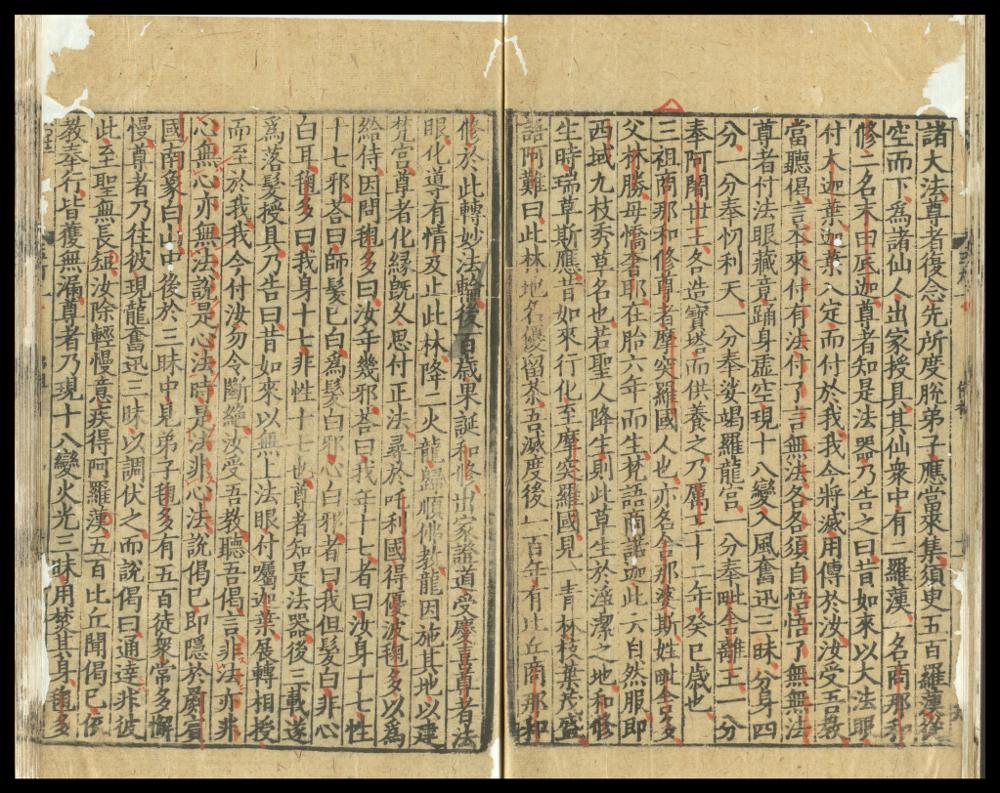 諸大法尊者復念先所度脫弟子應當來集須臾五百羅漢從
空而下爲諸仙人出家授具其仙衆中有一羅漢一名商那和
修二名末田底迦尊者知是法器乃告之曰昔如來以大法眼
付大迦葉迦葉入定而付於我我今將滅用傳於汝汝受吾教
當聽偈言本來付有法付了言無法各各須自悟悟了無無法
尊者付法眼藏竟踊身虛空現十八變入風奮迅三昧分身四
分一分奉忉利天一分奉娑竭羅龍宮一分奉毗舍離王一分
奉阿闍世王各造寶塔而供養之乃厲王十二年癸巳歲也
三祖商那和修尊者摩突羅國人也亦名舍那婆斯姓毗舍多
父林勝母憍奢耶在胎六年而生梵語商諾迦此云自然服即
西域九枝秀草名也若聖人降生則此草生於淨潔之地和修
生時瑞草斯應昔如來行化至摩突羅國見一青林枝葉茂盛
語阿難曰此林地名優留茶吾滅度後一百年有比丘商那和
修於此轉妙法輪後百歲果誕和修出家證道受慶喜尊者法
眼化導有情及止此林降二火龍歸順佛教龍因施其地以建
梵宮尊者化緣旣久思付正法尋於吒利國得優波毱多以爲
給侍因問毱多曰汝年幾邪荅曰我年十七者曰汝身十七性
十七邪荅曰師髮已白爲髮白邪心白邪者曰我但髮白非心
白耳毱多曰我身十七非性十七也尊者知是法器後三載遂
爲落髮授具乃告曰昔如來以無上法眼付囑迦葉展轉相授
而至於我我今付汝勿令斷絕汝受吾教聽吾偈言非法亦非
心無心亦無法說是心法時是法非心法說偈已即隱於罽賓
國南象白山中後於三昧中見弟子毱多有五百徒衆常多懈
慢尊者乃往彼現龍奮迅三昧以調伏之而說偈曰通達非彼
此至聖無長短汝除輕慢意疾得阿羅漢五百比丘聞偈已依
教奉行皆獲無漏尊者乃現十八變火光三昧用焚其身毱多